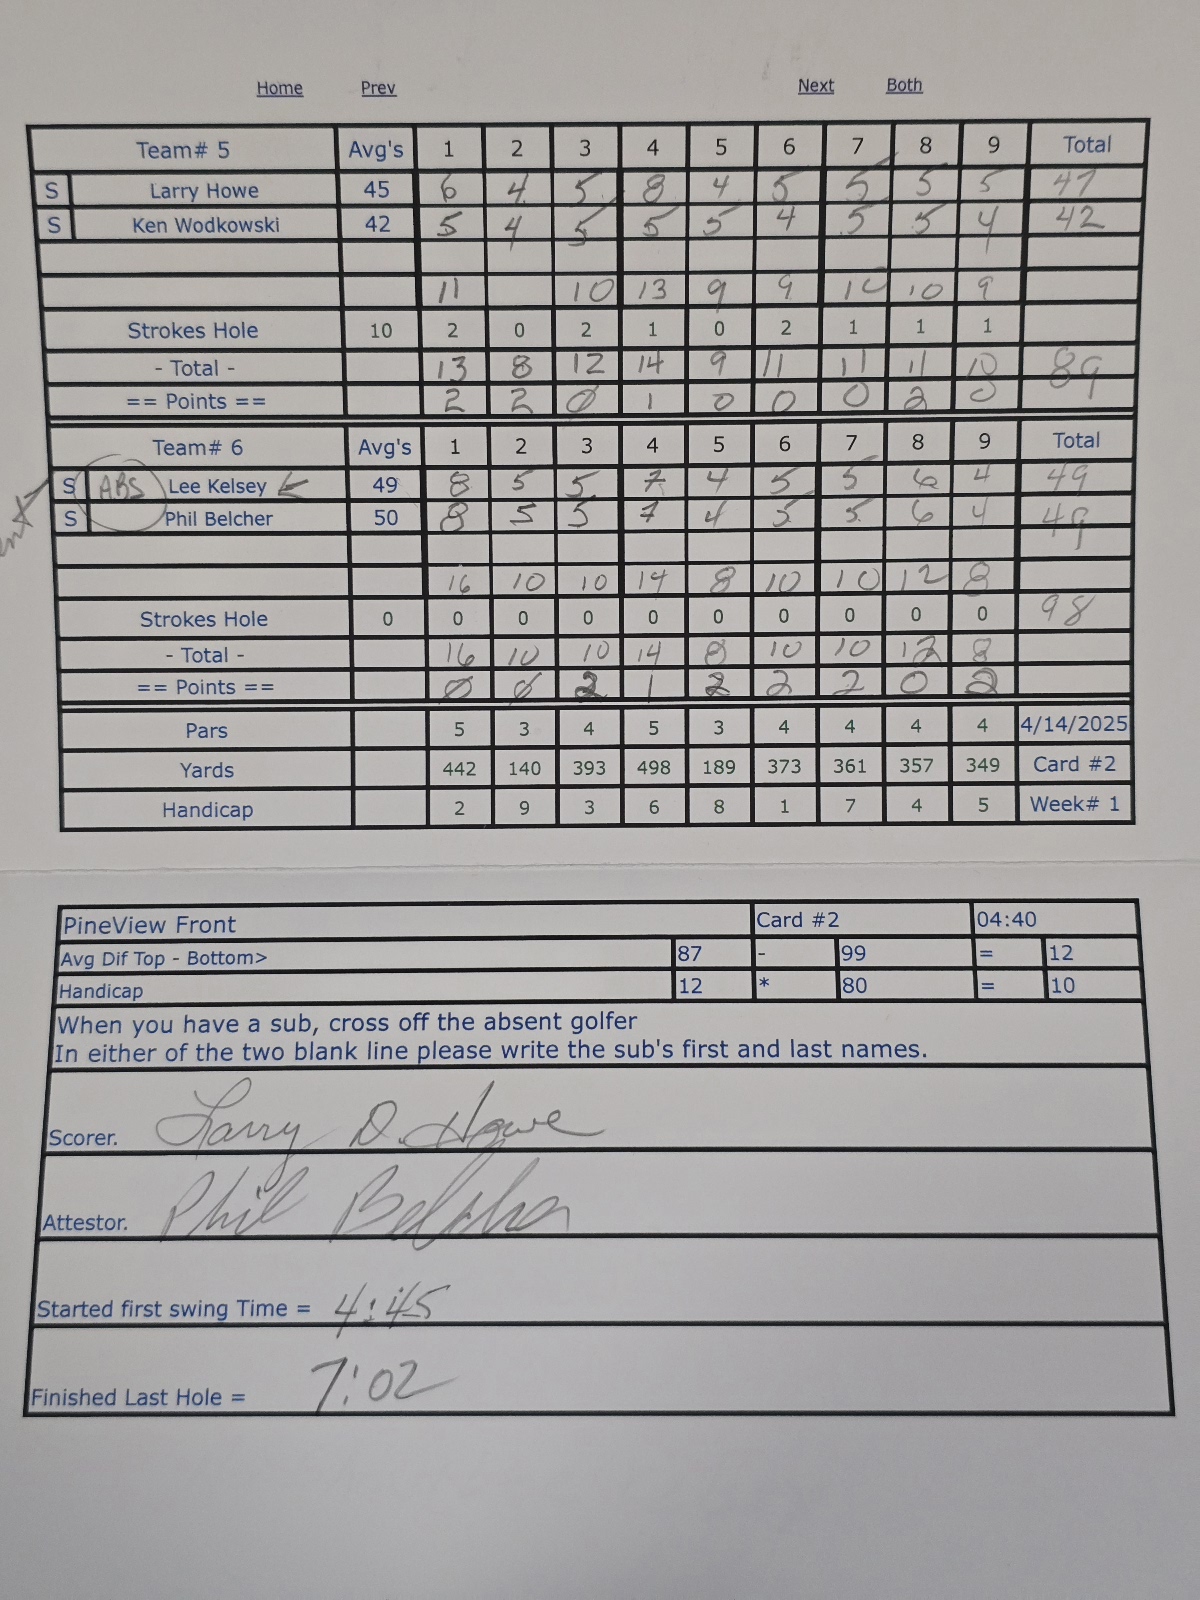 Home Prev Next Both
Team# 5 Avg's 1 2 3 4 5 6 7 8 9 Total
S Larry Howe 45 6 4 5 8 4 5 5 5 5 47
S Ken Wodkowski 42 5 4 5 5 5 4 5 5 4 42
11 10 13 9 9 10 10 9
Strokes Hole 10 2 0 2 1 0 2 1 1 1
- Total - 13 8 12 14 9 11 11 11 10 89
== Points == 2 2 0 1 0 0 0 2 0
Team# 6 Avg's 1 2 3 4 5 6 7 8 9 Total
S ABS Lee Kelsey 49 8 5 5 7 4 5 5 6 4 49
S Phil Belcher 50 8 5 5 7 4 5 5 6 4 49
16 10 10 14 8 10 10 12 8
Strokes Hole 0 0 0 0 0 0 0 0 0 0 98
- Total - 16 10 10 14 8 10 10 12 8
== Points == 0 0 2 1 2 2 2 0 2
Pars 5 3 4 5 3 4 4 4 4 4/14/2025
Yards 442 140 393 498 189 373 361 357 349 Card #2
Handicap 2 9 3 6 8 1 7 4 5 Week# 1
PineView Front Card #2 04:40
Avg Dif Top - Bottom> 87 - 99 = 12
Handicap 12 * 80 = 10
When you have a sub, cross off the absent golfer
In either of the two blank line please write the sub's first and last names.
Scorer. Larry D. Howe
Attestor. Phil Belcher
Started first swing Time = 4:45
Finished Last Hole = 7:02